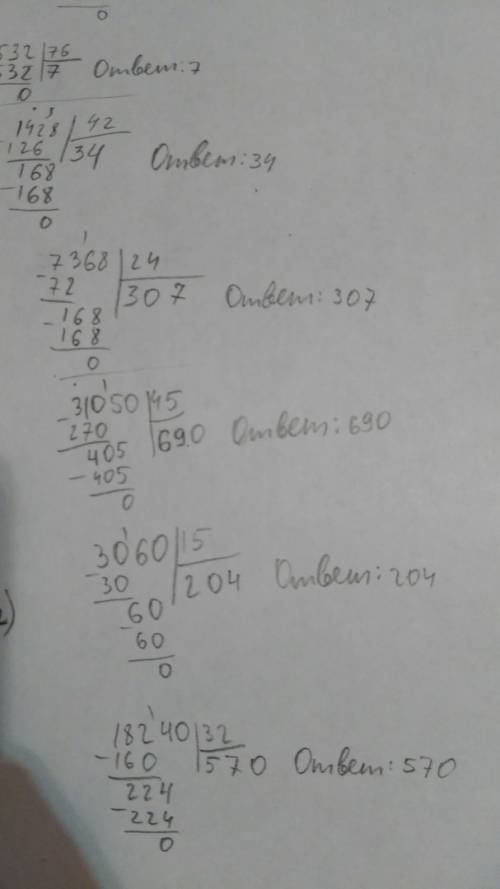 0
532 76
532 7 Ответ: 7
0
1428 42
126 34 Ответ: 34
168
-168
0
-7368 24
72 307 Ответ: 307
-168
168
0
-31050 45
270 690 Ответ: 690
405
-405
0
-3060 15
30 204 Ответ: 204
-60
60
0
18240 32
-160 570 Ответ: 570
224
-224
0